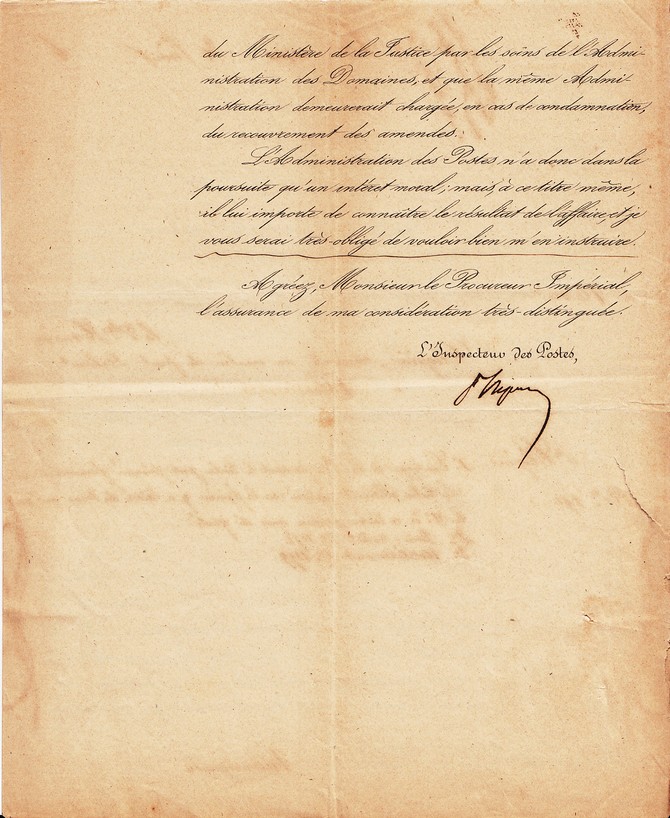 du Ministère de la Justice par les soins de l'Admi-
nistration des Domaines, et que la même Admi-
nistration demeurerait chargée, en cas de condamnation,
du recouvrement des amendes.
L'Administration des Postes n'a donc dans la
poursuite qu'un intérêt moral; mais, à ce titre même,
il lui importe de connaître le résultat de l'affaire et je
vous serai très-obligé de vouloir bien m'en instruire.
Agréez, Monsieur le Procureur Impérial,
l'assurance de ma considération très-distinguée.
L'Inspecteur des Postes,